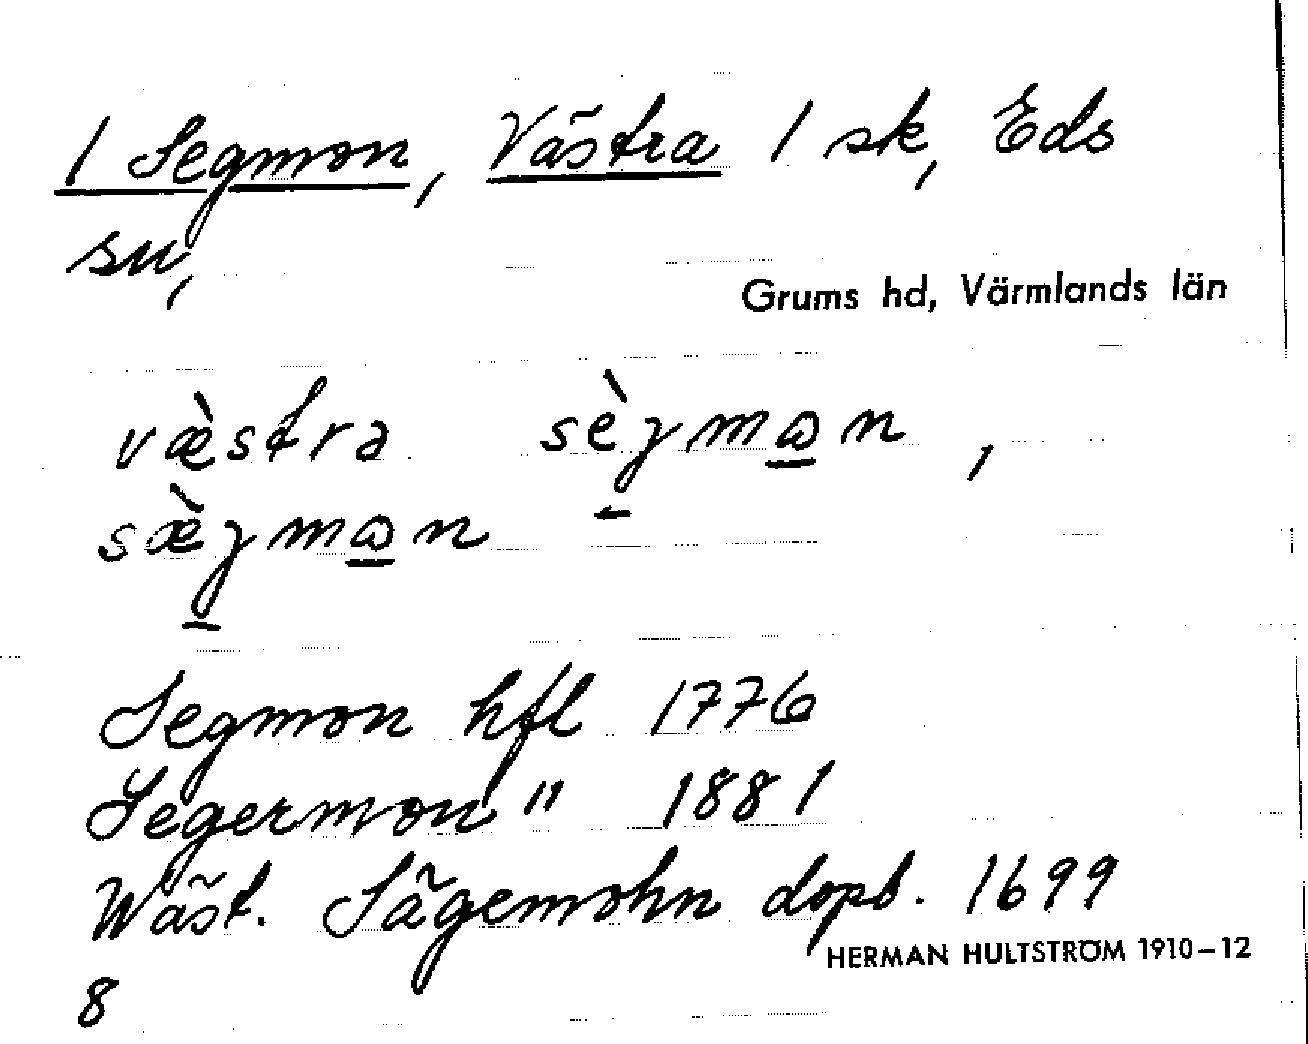 1 Segmon, Västra 1 sk, Eds
sn,
Grums hd, Värmlands län
væ̀stra sègmɷn,
sæ̀gmɷn
Segmon hfl 1776
Segermon " 1881
Wäst. Sägemohn dopb. 1699
HERMAN HULTSTRÖM 1910–12
8